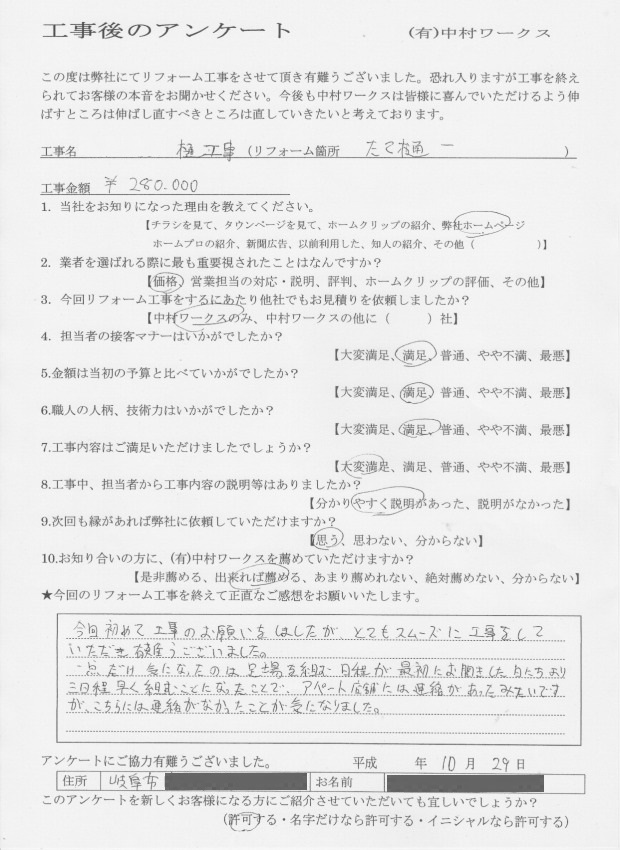 工事後のアンケート　(有)中村ワークス
この度は弊社にてリフォーム工事をさせて頂き有難うございました。恐れ入りますが工事を終え
られてお客様の本音をお聞かせください。今後も中村ワークスは皆様に喜んでいただけるよう伸
ばすところは伸ばし直すべきところは直していきたいと考えております。
工事名　樋工事　(リフォーム箇所　たて樋　　)
工事金額　¥ 280.000
1. 当社をお知りになった理由を教えてください。
【チラシを見て、タウンページを見て、ホームクリップの紹介、弊社ホームページ
ホームプロの紹介、新聞広告、以前利用した、知人の紹介、その他（　　　　）】
2. 業者を選ばれる際に最も重要視されたことはなんですか？
【価格、営業担当の対応・説明、評判、ホームクリップの評価、その他】
3. 今回リフォーム工事をするにあたり他社でもお見積りを依頼しましたか？
【中村ワークスのみ、中村ワークスの他に（　　　）社】
4. 担当者の接客マナーはいかがでしたか？
【大変満足、満足、普通、やや不満、最悪】
5.金額は当初の予算と比べていかがでしたか？
【大変満足、満足、普通、やや不満、最悪】
6.職人の人柄、技術力はいかがでしたか？
【大変満足、満足、普通、やや不満、最悪】
7.工事内容はご満足いただけましたでしょうか？
【大変満足、満足、普通、やや不満、最悪】
8.工事中、担当者から工事内容の説明等はありましたか？
【分かりやすく説明があった、説明がなかった】
9.次回も縁があれば弊社に依頼していただけますか？
【思う、思わない、分からない】
10.お知り合いの方に、(有)中村ワークスを薦めていただけますか？
【是非薦める、出来れば薦める、あまり薦めれない、絶対薦めない、分からない】
★今回のリフォーム工事を終えて正直なご感想をお願いいたします。
今回初めて工事のお願いをしましたが とてもスムーズに工事をして
いただき有難うございました。
一点だけ気になったのは足場を組む日程が最初にお聞きした日にちより
二日程早く組むことになったことで、アパート店舗には連絡があったみたいです
が、こちらには連絡がなかったことが気になりました。
アンケートにご協力有難うございました。　平成　　年 10 月 29 日
住所　岐阜市　お名前
このアンケートを新しくお客様になる方にご紹介させていただいても宜しいでしょうか？
（許可する・名字だけなら許可する・イニシャルなら許可する）